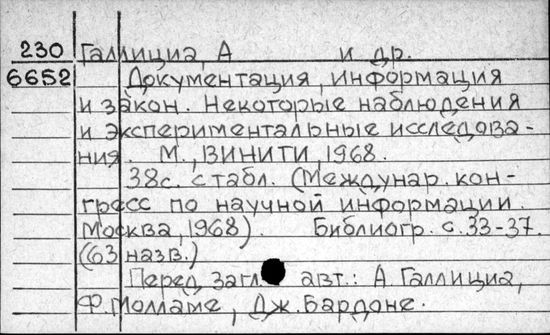 230 Галлициа, А и др.
6652 Документация, информация
и закон. Некоторые наблюдения
и экспериментальные исследова-
ния. М., ВИНИТИ, 1968.
38с. с табл. (Междунар. кон-
гресс по научной информации.
Москва, 1968). Библиогр. с. 33-37.
(63 назв.)
Перед загл. авт.: А. Галлициа,
Ф. Молламе, Дж. Бардоне.